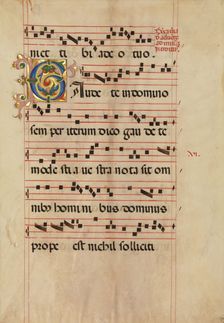 met ti bi a de o tuo.
Gau de te in domino
sem per iterum dico gau de te
mode sti a ue stra nota sit om
nibus homini bus dominus
prope est nichil solliciti